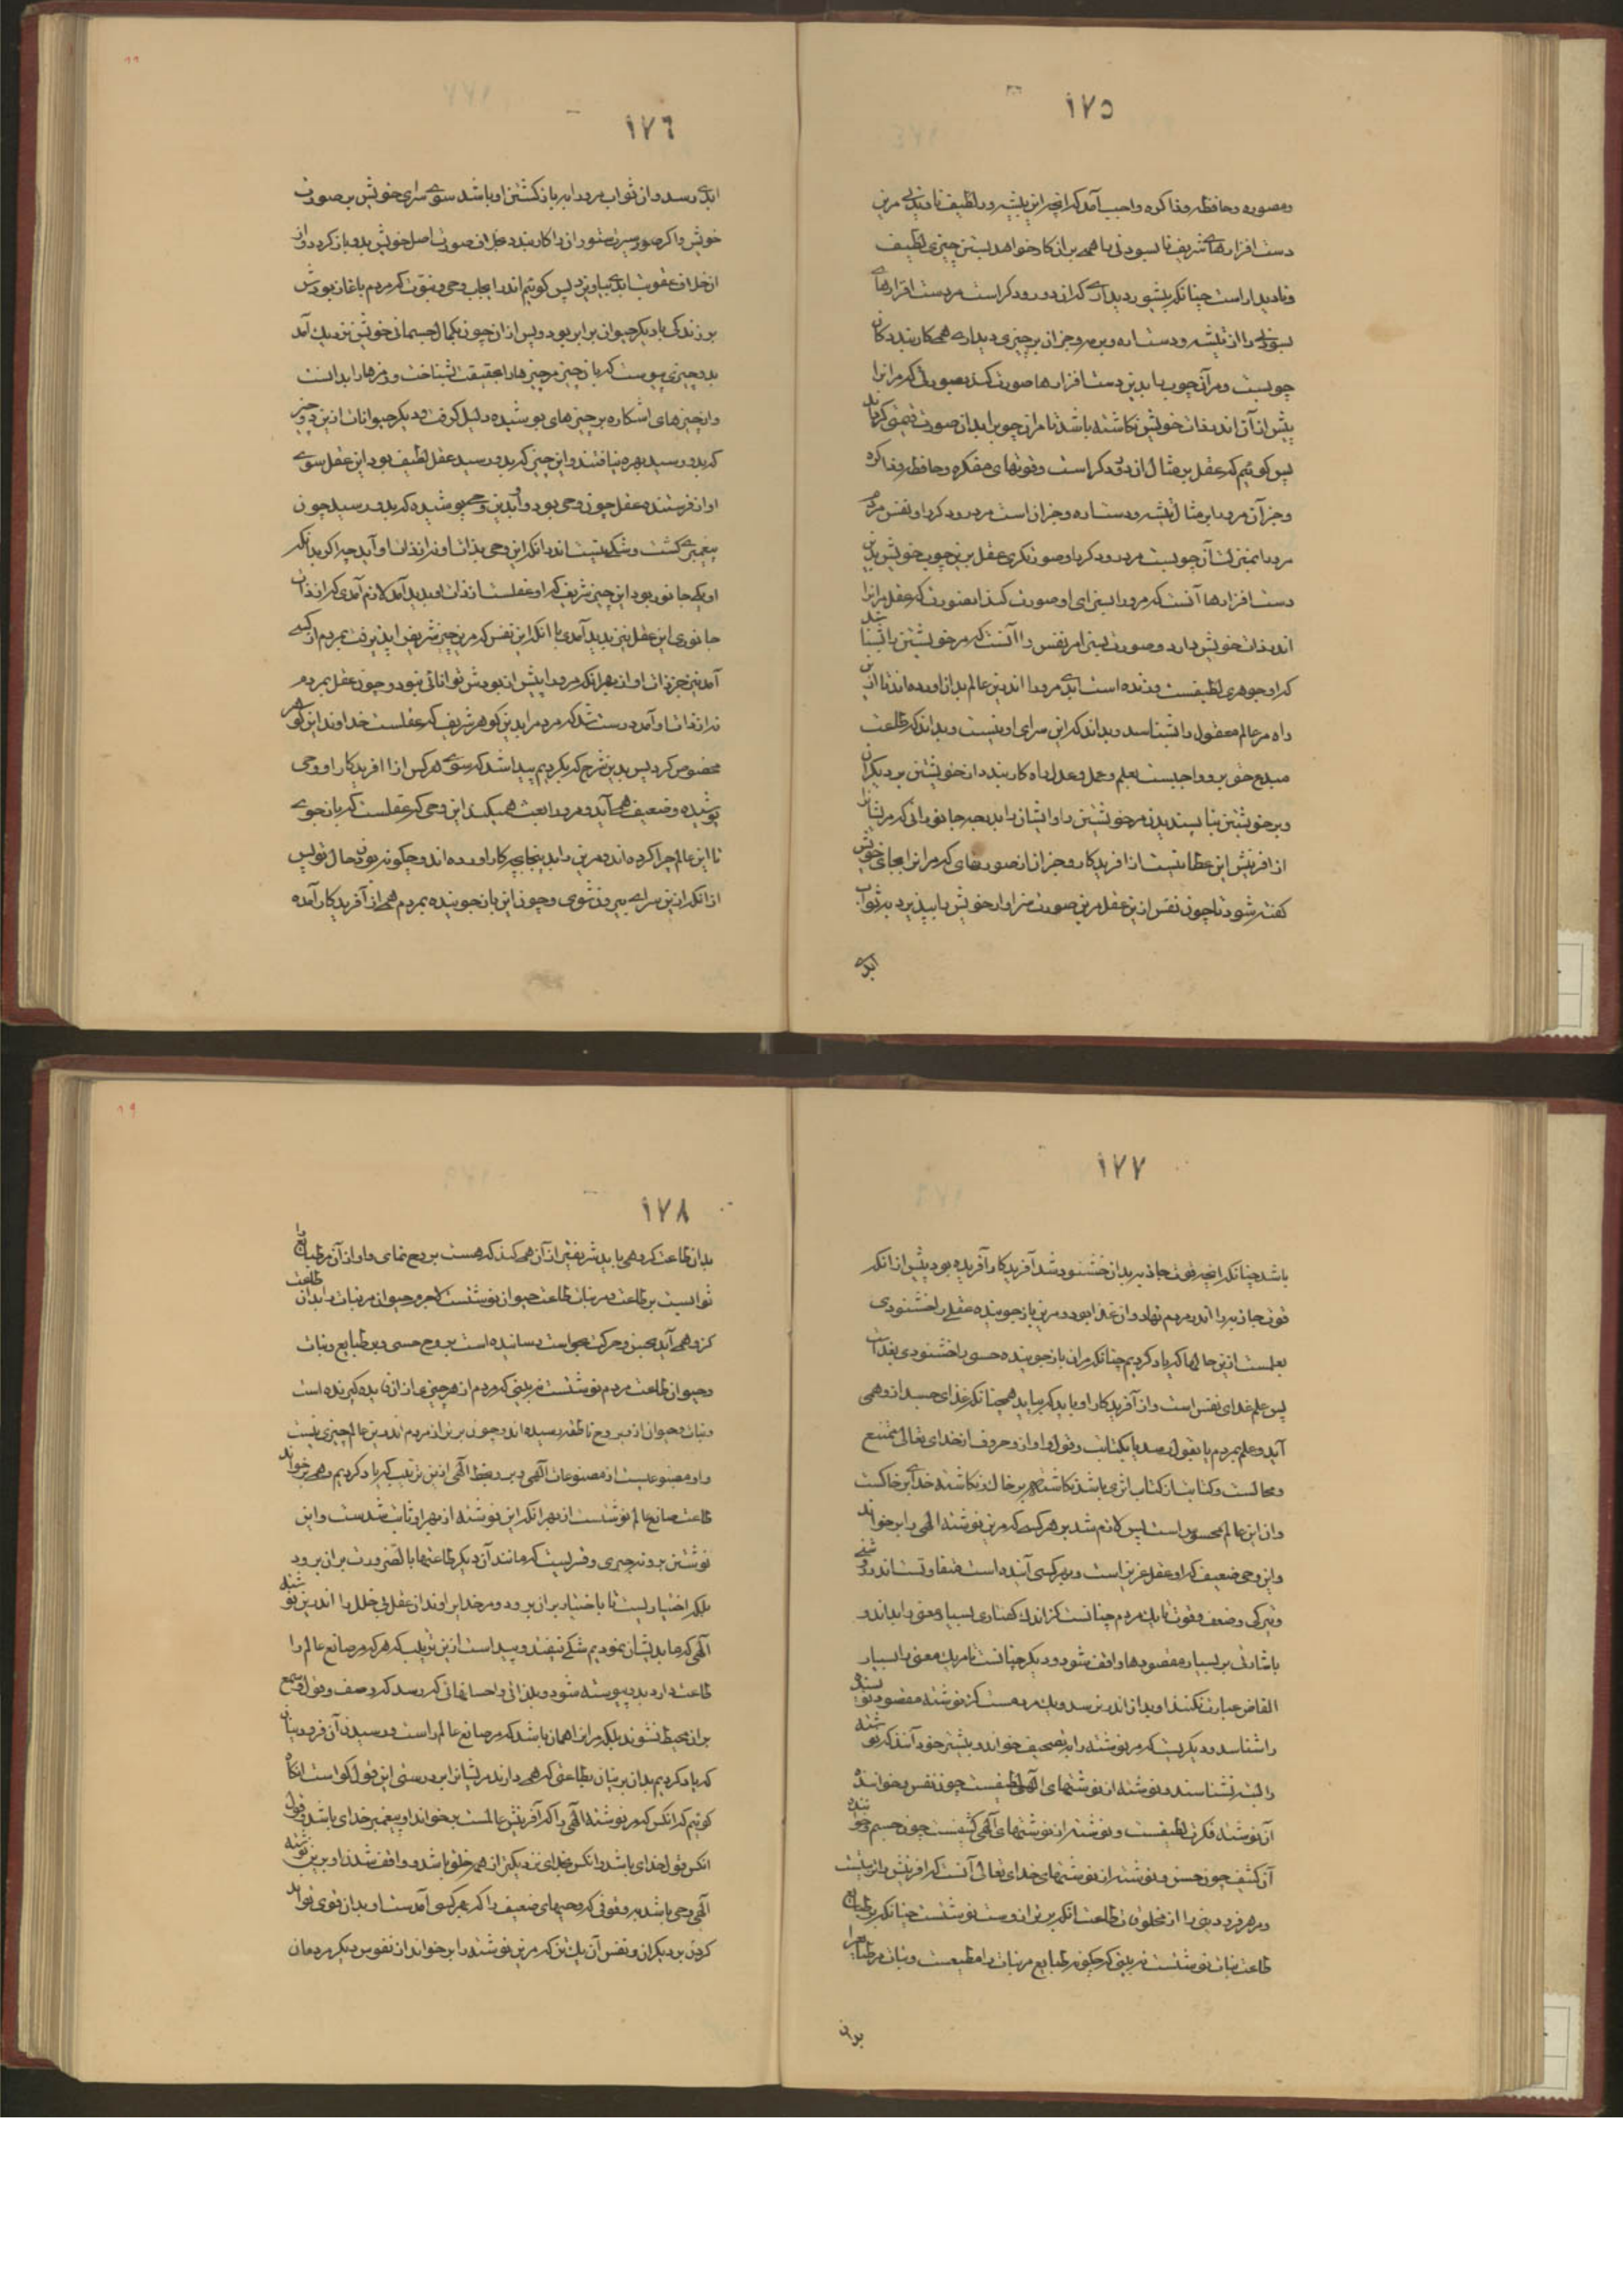 ١٧٥
ومصوره وحافظه وذاکره واجب آمد که انچه این پیشه ور لطیف نادیدنی مرین
دست افزارهای شریف نابسودنی را همی بران کار خواهد بستن چیزی لطیف
ونادیدار است چنانکه پیشه ور دیداری که آن درودگر است مر دست افزارهای
بسودنی را از تیشه ودستاره وبرمه وجز ان بر چیزی دیداری همی کار بندد کان
چوبست ومر آن چوب را بدین دست افزارها صورت کند بصورتی که مرانرا
پیش از آن اندر ذات خویش نگاشته باشد تا مران چوب را بدان صورت قیمتی گرداند
پس گوئیم که عقل بر مثال درودگر است وقوتهای مفکره وحافظه وذاکره
وجز آن مرو را بر مثال تیشه ودستاره وجز ان است مر درودگر را ونفس مردم
مرو را بمنزلت آن چوبست مر درودگر را وصورتگری عقل برین چوب خویش بدین
دست افزارها آنست که مرورا بستی ای او صورت کند ان صورت که عقل مرانرا
اندر ذات خویش دارد وصورت بستن مر نفس را آنست که مر خویشتن را بشناسد
که او جوهری لطیفست وزنده است ابدی مرورا اندرین عالم بدان اورده اند تا ازین
راه مر عالم معقول را بشناسد وبداند که این سرای او نیست وبداند که طاعت
مبدع حق برو واجبست بعلم وعمل وعدل راه کار بندد از خویشتن بر دیگران
وبر خویشتن بنا پسندیدن مر خویشتن را وایشان را بدنچه جانورانی که مرایشانرا
از افرینش این عطا نیست از افریدگار وجز ان از صورتهای که مرانرا بجای خویش
گفته شود تا چون نفس ازین عقل مرین صورت سزاوار خویش را بپذیرد بثواب
ابدی
١٧٦
ابدی رسد واز ثواب مرورا بر بازگشتن او باشد سوی سرای خویش بر صورت
بر زندگی با دیگر حیوان برابر بود وپس ازان چون بکمال جسمانی خویش نزدیک آمد
بدو چیزی پیوست که بدان چیز مر چیزها را بحقیقت بشناخت ورمزها را بدانست
واز چیزهای اشکاره بر چیزهای پوشیده دلیل گرفت ودیگر حیوانات ازین دو چیز
که بدو رسید بهره نیافتند واین چیز که بدو رسید عقل لطیف بود این عقل سوی
او از فرستنده عقل چون وحی بود واو بدین وحی پوشیده که بدو رسید چون
پیغمبری گشت وشکی نیست اندر انکه این وحی بذات او نه از ذات او آید چرا که بدانکه
او یکی جانور بود این چیز شریف که او عقلست از ذات او پدید آمد لازم آمدی که از ذات
جانوری این عقل نیز پدید آمدی با انکه این نفس که مرین چیز شریف را پذیرفت بمردم از کسی
آمد نیز جز ذات او از بهر انکه مرورا پیش از بودش توانائی نبود وچون عقل بمردم
نه از ذات او آمد درست شد که مردم را بدین گوهر شریف که عقلست خداوند این گوهر
مخصوص کرد پس بدین شرح که بکردیم پیدا شد که سوی هر کس از افریدگار او وحی
پوشیده وضعیف همی آید ومرورا بعث همیکند این وحی که عقلست که باز جوی
تا این عالم چرا کرده اند ومرین را بدینجای بچه کار اورده اند وچگونه بود حال تو پس
ازانکه ازین سرای بیرون شوی وچون این باز جوینده بمردم همی از آفریدگار آمده
١٧٧
باشد چنانکه انچه قوت جاذبه بدان خشنود شد آفریدگار آفریده بود پیش از انکه
قوت جاذبه را اندر مردم نهاد وان غذا بود ومرین باز جوینده عقلی را خشنودی
بعلمست ازین حالها که یاد کردیم چنانکه مران باز جوینده حسی را خشنودی بغذاست
پس علم غذای نفس است واز آفریدگار او باید که بیاید همچنانکه غذای جسد ازو همی
آید وعلم بمردم یا بقول رسد یا بکتابت وقول واواز وحروف از خدای تعالی ممتنع
ومحالست وکتابت از کتاب اثری باشد نگاشته بر خاک ونگاشته خدا بر خاکست
وان این عالم محسوس است پس لازم شد بر هر کسی که مرین نوشته الهی را بر خواند
واین وحی ضعیف که او عقل عزیز است وبهر کسی آینده است متفاوتست اندر روشنی
وتیرگی وضعف وقوت تا یک مردم چنانست کز اندک گفتاری بسیار معنی را بداند و
باشارتی بر بسیار مقصودها واقف شود ودیگر چنانست تا مر یک معنی را بسیار
الفاظ عبارت نکنند او بدان اندر نرسد ویک مرد هست کز نوشته مقصود نویسنده
را شناسد ودیگریست که مر نوشته را بتصحیف خواند وبیشتر خود آنند که نوشته
را البته نشناسند ونوشته از نوشتهای الهی لطیفست چون نفس وخواننده
آن نوشته فکرت لطیفست ونوشته از نوشتهای الهی کثیفست چون جسم وخواننده
آن کثیف چون حس ونوشته از نوشتهای خدای تعالی آنست که افرینش بران نیست
ومر هر فرودینی را از مخلوقات طاعت انکه برتر ازوست نوشتست چنانکه بر طبایع
طاعت نبات نوشتست نه بینی که چگونه طبایع مر نبات را مطیعست ونبات مر طبایع را
بدان
١٧٨
بدان طاعت که وهمی یابد شریفتر از آن همی کند که هست بروح نمای واو از آن مر طبایع را
ثوابیست بر طاعت ومر نبات طاعت حیوان نوشتست لاجرم حیوان مر نبات را بدان طاعت
کزو همی آید بحس وحرکت بخواست رسانیده است بروح حسی وبر طبایع ونبات
وحیوان طاعت مردم نوشتست نه بینی که مردم از هر چیزی ازان فایده گیرنده است
ونبات وحیوان ازو بروح ناطقه رسیده اند وچون برتر از مردم اندرین عالم چیزی نیست
واو مصنوعیست از مصنوعات الهی وبرو بخط الهی ازین ترتیب که یاد کردیم وهمی بر خواند
طاعت صانع عالم نوشتست از بهر انکه این نوشته از بهر او ثابت شدست واین
نوشتن برو نه جبری وقسریست که مانند آن دیگر طاعتها بالضرورت بران برود
بلکه اختیاریست تا باختیار بران برود ومر خداوندان عقل بی خلل را اندرین نوشته
الهی که ما بدیشان نمودیم شکی نیفتد وپیداست ازین ترتیب که هر که مر صانع عالم را
طاعت دارد بدو پیوسته شود وبلذاتی واحسانهائی که رسد که وصف وقول وسمع
بران محیط نشوند بلکه مرانرا همان باشد که مر صانع عالم راست ورسیدن آن فرودینان
که یاد کردیم بدان برینان بطاعتی که همی دارند مریشانرا بر درستی این قول گواست انگاه
گوئیم که انکس که مر نوشته الهی را که آفرینش عالمست بر خواند او پیغمبر خدای باشد وقول
انکس قول خدای باشد وانکس بخدای نزدیکتر از همه خلق باشد وواقف شدن او برین نوشته
الهی وحی باشد برو قوتی که وحیهای ضعیف را که بهر کسی آمدست او بدان قوی تواند
کردن بر دیگران ونفس آن یک تن که مرین نوشته را بر خواند از نفوس دیگر مردمان